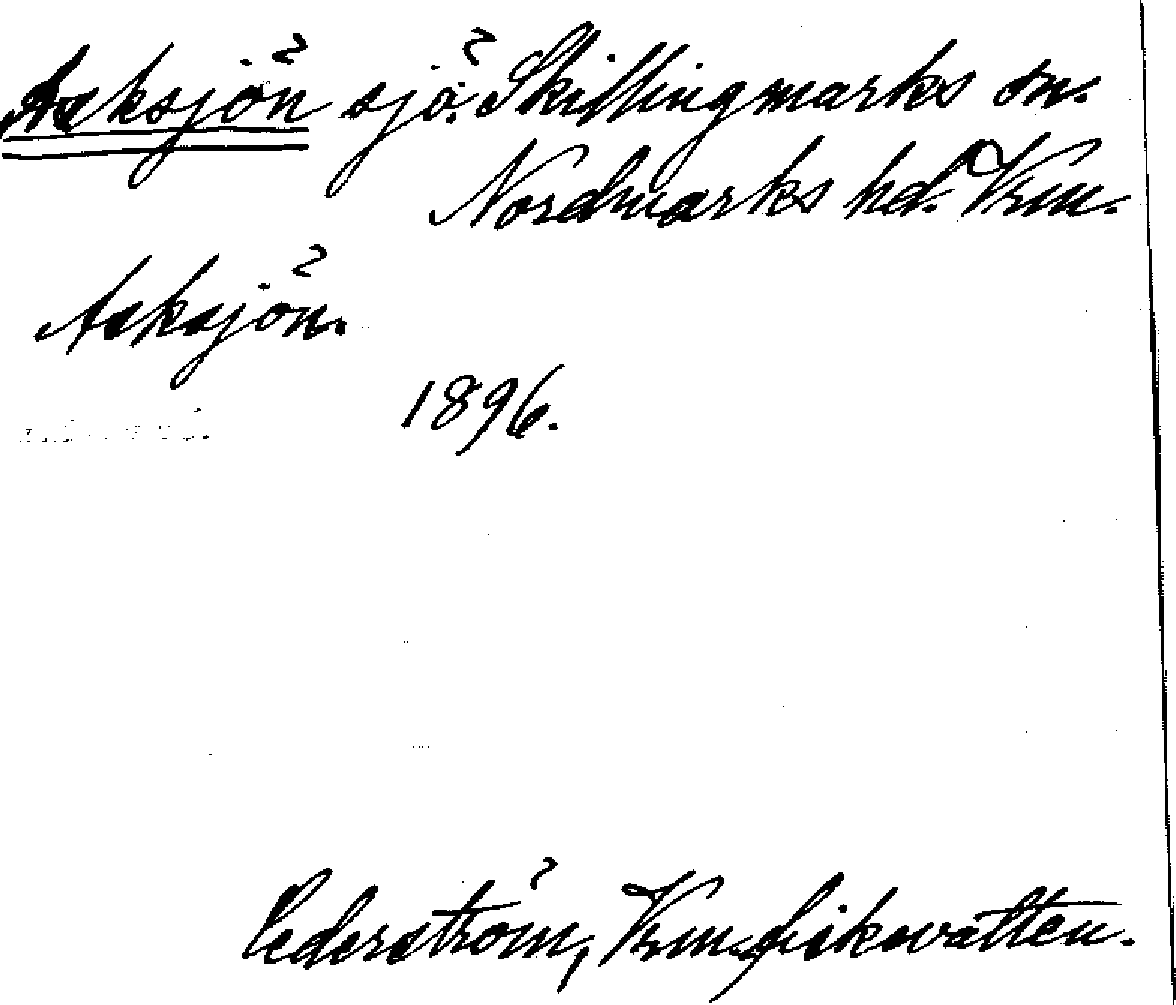 Asksjön sjö. Skillingmarks sn.
Nordmarks hd. Vrm.
Asksjön.
1896.
Cederström, Vrms fiskevatten.